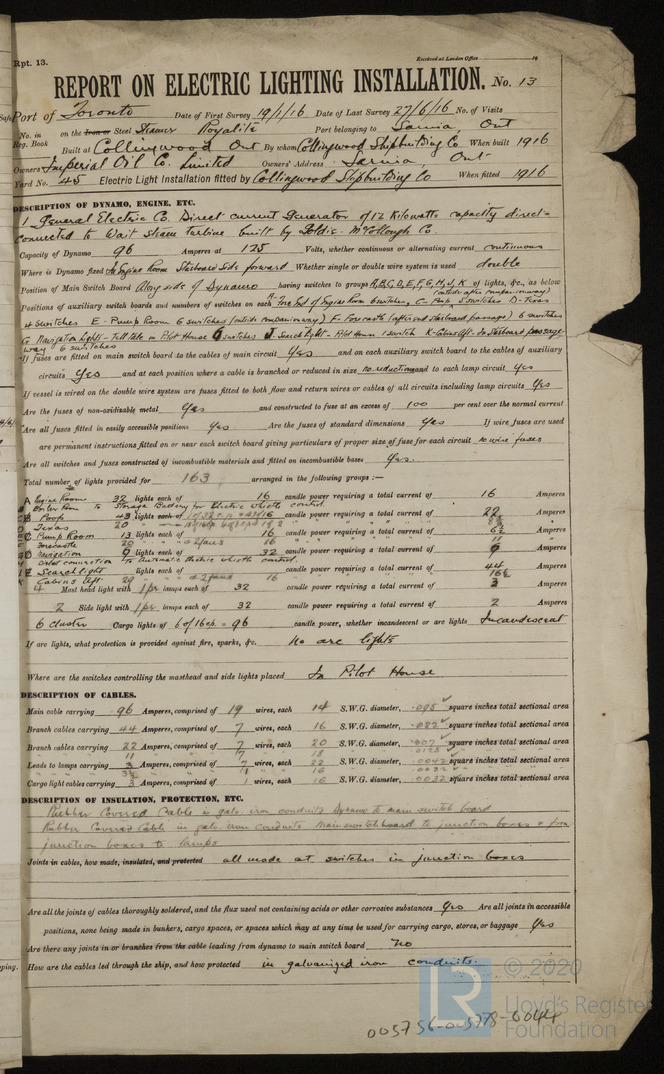 Rpt. 13.
Received at London Office 19
REPORT ON ELECTRIC LIGHTING INSTALLATION. No. 13
Port of Toronto Date of First Survey 19/1/16 Date of Last Survey 27/6/16 No. of Visits
No. in Reg. Book on the Iron or Steel Steamer Royalite Port belonging to Sarnia, Ont
Built at Collingwood Ont By whom Collingwood Shipbuilding Co When built 1916
Owners Imperial Oil Co. Limited Owners' Address Sarnia, Ont
Yard No. 45 Electric Light Installation fitted by Collingwood Shipbuilding Co When fitted 1916
DESCRIPTION OF DYNAMO, ENGINE, ETC.
1 General Electric Co. Direct current Generator of 12 Kilowatts capacity direct-
connected to steam turbine built by Goldie-McCollough Co.
Capacity of Dynamo 96 Amperes at 125 Volts, whether continuous or alternating current continuous
Where is Dynamo fixed In Engine Room Starboard Side forward Whether single or double wire system is used double
Position of Main Switch Board Along side of Dynamo having switches to groups A, B, C, D, E, F, G, H, J, K of lights, &c., as below
Positions of auxiliary switch boards and numbers of switches on each
4 switches E - Pump Room 6 switches (outside companionway) F - Forecastle 6 switches
G Navigation Lights - Tell tale in Pilot House 6 switches J Search Light - Pilot House 1 switch K - Cabins Aft - Starboard passage-
way 6 switches
If fuses are fitted on main switch board to the cables of main circuit Yes and on each auxiliary switch board to the cables of auxiliary
circuits Yes and at each position where a cable is branched or reduced in size no reduction and to each lamp circuit Yes
If vessel is wired on the double wire system are fuses fitted to both flow and return wires or cables of all circuits including lamp circuits Yes
Are the fuses of non-oxidizable metal Yes and constructed to fuse at an excess of 100 per cent over the normal current
Are all fuses fitted in easily accessible positions Yes Are the fuses of standard dimensions Yes If wire fuses are used
are permanent instructions fitted on or near each switch board giving particulars of proper size of fuse for each circuit no wire fuses
Are all switch and fuses constructed of incombustible materials and fitted on incombustible bases Yes.
Total number of lights provided for 163 arranged in the following groups :—
A Engine Room 32 lights each of 16 candle power requiring a total current of 16 Amperes
Boiler Room to Storage Battery for Electric whistle control
B Poop 43 lights each of 16 candle power requiring a total current of 22 Amperes
D Texas 20
Pump Room 13 lights each of 16 candle power requiring a total current of 6½ Amperes
Forecastle 20 + 2 fans 16 11
G Navigation 9 lights each of 32 candle power requiring a total current of Amperes
connection to Automatic Electric whistle control
Searchlight lights each of candle power requiring a total current of 44 Amperes
K Cabins Aft 29 + 2 fans 16 16½
4 Mast head light with 1 pr lamps each of 32 candle power requiring a total current of 3 Amperes
2 Side light with 1 pr lamps each of 32 candle power requiring a total current of 2 Amperes
6 cluster Cargo lights of 6 of 16 cp. = 96 candle power, whether incandescent or arc lights Incandescent
If arc lights, what protection is provided against fire, sparks, &c. no arc lights
Where are the switches controlling the masthead and side lights placed In Pilot House
DESCRIPTION OF CABLES.
Main cable carrying 96 Amperes, comprised of 19 wires, each 14 S.W.G. diameter, .095 square inches total sectional area
Branch cables carrying 44 Amperes, comprised of 7 wires, each 16 S.W.G. diameter, square inches total sectional area
Branch cables carrying 22 Amperes, comprised of 7 wires, each 20 S.W.G. diameter, .007 square inches total sectional area
11 7 18
Leads to lamps carrying 3 Amperes, comprised of 7 wires, each 22 S.W.G. diameter, square inches total sectional area
Cargo light cables carrying 3 Amperes, comprised of 1 wires, each 16 S.W.G. diameter, .0032 square inches total sectional area
DESCRIPTION OF INSULATION, PROTECTION, ETC.
Rubber Covered Cable in galv. iron conduits Dynamo to main switch board
Rubber Covered Cable in galv. iron conduits main switchboard to junction boxes & from
junction boxes to lamps
Joints in cables, how made, insulated, and protected all made at switches in junction boxes
Are all the joints of cables thoroughly soldered, and the flux used not containing acids or other corrosive substances Yes Are all joints in accessible
positions, none being made in bunkers, cargo spaces, or spaces which may at any time be used for carrying cargo, stores, or baggage Yes
Are there any joints in or branches from the cable leading from dynamo to main switch board No
How are the cables led through the ship, and how protected in galvanized iron conduits.
© 2020
Lloyd's Register
Foundation
005756-005778-0044